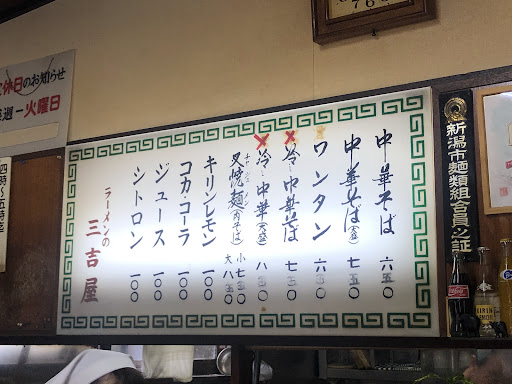 中華そば 六五〇
中華そば(大盛) 七五〇
ワンタン 六五〇
冷し中華そば 七五〇
冷し中華(大盛) 八五〇
叉焼麺(肉そば) 小七五〇 大八五〇
キリンレモン 一〇〇
コカ・コーラ 一〇〇
ジュース 一〇〇
シトロン 一〇〇
ラーメンの
三吉屋
新潟市麺類組合員之証
定休日のお知らせ
毎週一火曜日
四時〜五時迄